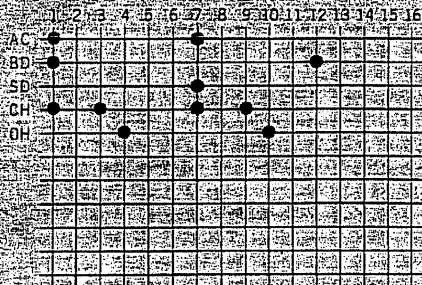 1 2 3 4 5 6 7 8 9 10 11 12 13 14 15 16
AC
BD
SD
CH
OH